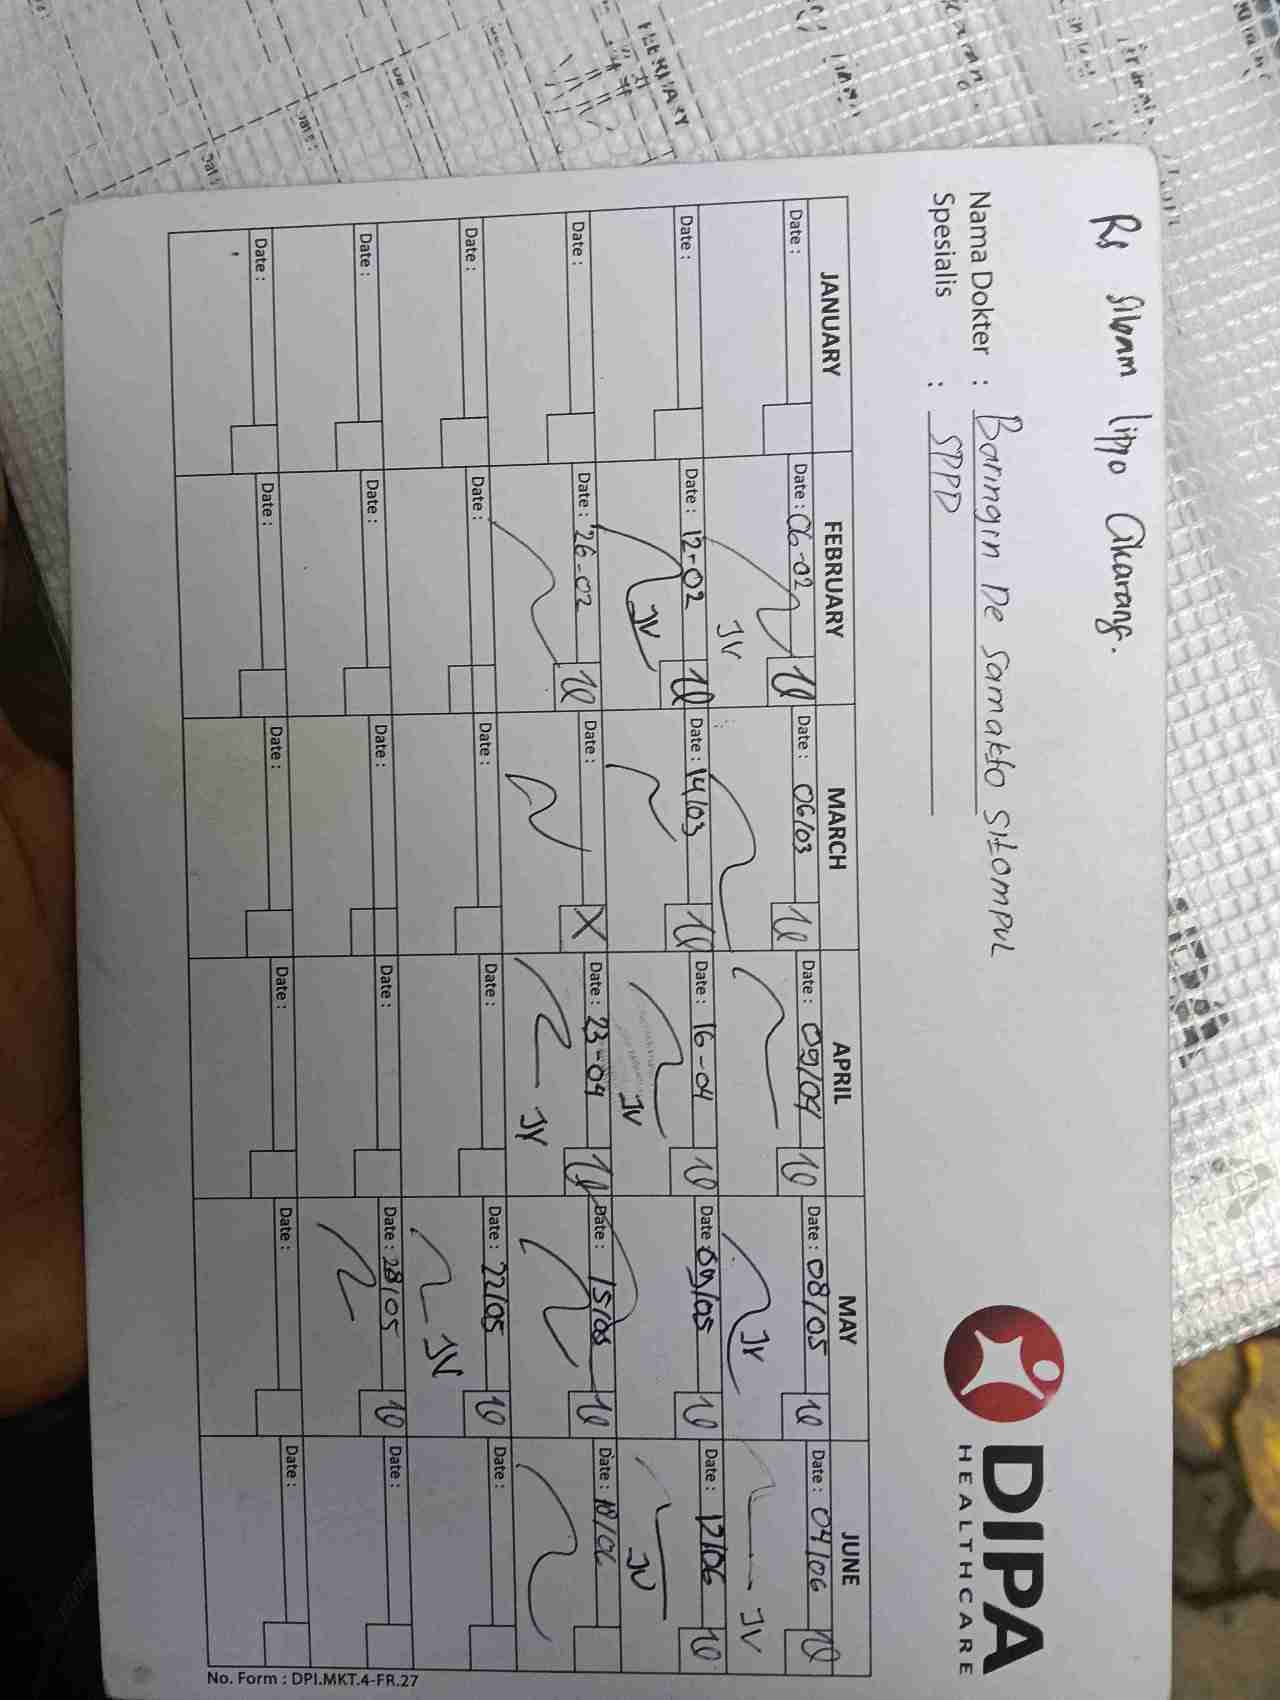 Rs Siloam lippo Cikarang.
DIPA
HEALTHCARE
Nama Dokter : Baringin De Samakto Sitompul
Spesialis : SPPD
JANUARY FEBRUARY MARCH APRIL MAY JUNE
Date : Date : 06-02 10 Date : 06/03 10 Date : 09/04 10 Date : 08/05 10 Date : 04/06 10
JV JV JV
Date : Date : 12-02 10 Date : 14/03 10 Date : 16-04 10 Date : 09/05 10 Date : 12/06 10
JV JV JV
Date : Date : 26-02 10 Date : X Date : 23-04 10 Date : 15/05 10 Date : 18/06
JV
Date : Date : Date : Date : Date : 22/05 10 Date :
JV
Date : Date : Date : Date : Date : 28/05 10 Date :
Date : Date : Date : Date : Date : Date :
No. Form : DPI.MKT.4-FR.27
FEBRUARY
DIPA